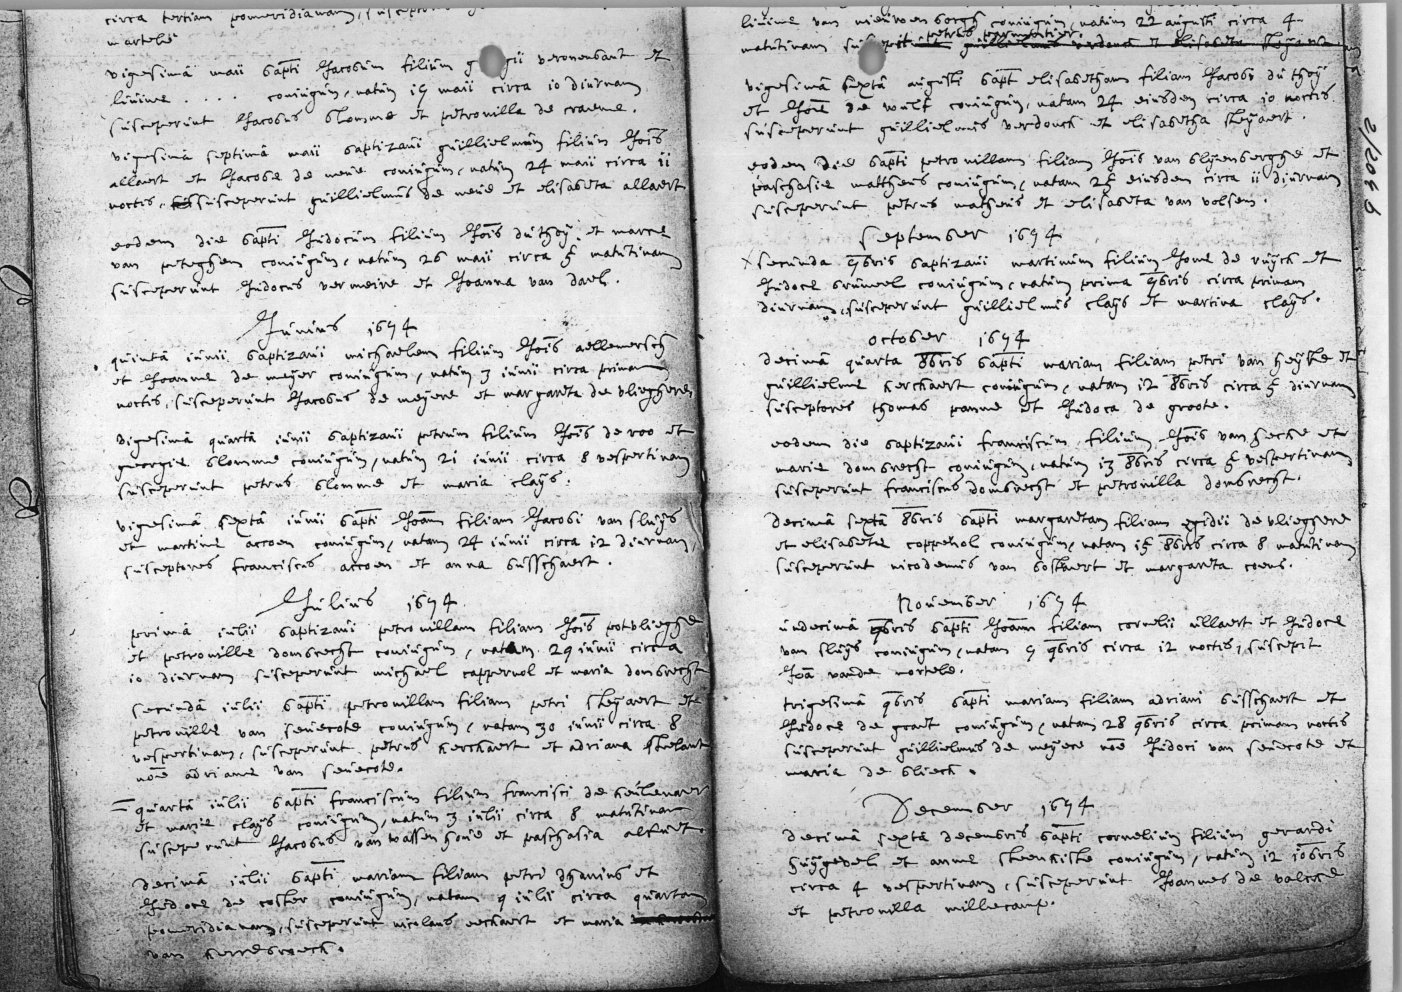 circa tertiam pomeridianam, susceper
martelé
vigesimâ maii bapti Jacobum filium g gii veronensaut et
livinæ . . . . coniugum, natum 19 maii circa 10 diurnam
susceperunt Jacobus blomme et petronilla de craeme.
vigesimâ septimâ maii baptizavi guillielmum filium Jois
allaert et Jacobæ de meue coniugum, natum 24 maii circa 11
noctis, susceperunt guillielmus de meue et elisabeta allaert
eodem die bapti Judocum filium Jois du thoy et mariæ
van peteghem coniugum, natum 26 maii circa 5 matutinam
susceperunt Judocus vermeire et Joanna van dael.
Junius 1674
quintâ iunii baptizavi michaelem filium Jois aellemersch
et Joannæ de meyer coniugum, natum 3 iunii circa primam
noctis, susceperunt Jacobus de meyere et margareta de vlieghere
vigesimâ quartâ iunii baptizavi petrum filium Jois de roo et
georgiæ blomme coniugum, natum 21 iunii circa 8 vespertinam
susceperunt petrus blomme et maria clays.
vigesimâ sextâ iunii bapti Joam filiam Jacobi van sluys
et martinæ accoen coniugum, natam 24 iunii circa 12 diurnam,
susceptores franciscus accoen et anna busschaert.
Julius 1674
primâ iulii baptizavi petronillam filiam Jois potvlieghe
et petronillæ dombrecht coniugum, natam 29 iunii circa
10 diurnam susceperunt michael cappernol et maria dombrecht
secundâ iulii bapti petronillam filiam petri steyaert et
petronillæ van sevecote coniugum, natam 30 iunii circa 8
vespertinam, susceperunt petrus kerckaert et adriana
noe adrianæ van sevecote.
quartâ iulii bapti franciscum filium francisci de keulenaer
et mariæ clays coniugum, natum 3 iulii circa 8 matutinam
susceperunt Jacobus van wassenhove et paschasia
decimâ iulii bapti mariam filiam petri et
Judocæ de coster coniugum, natam 9 iulii circa quartam
pomeridianam, susceperunt nicolaus eechaert et maria
van kerrebroeck.
livinæ van nieuwenborgh coniugum, natum 22 augusti circa 4
petrus parmentier.
matutinam suscepit guillielmus verdonck et elisabeta steyaert
vigesimâ sextâ augusti bapt elisabetham filiam Jacobi du thoy
et Joæ de wulf coniugum, natam 24 eiusdem circa 10 noctis
susceperunt guillielmus verdonck et elisabetha steyaert.
eodem die bapti petronillam filiam Jois van slyenberghe et
paschasiæ mattheus coniugum, natam 25 eiusdem circa 11 diurnam
susceperunt petrus matheus et elisabeta van volsem.
september 1674
x secunda 7bris baptizavi martinum filium Jois de ruyck et
Judocæ gruwel coniugum, natum prima 7bris circa primam
diurnam, susceperunt guillielmus clays et martina clays.
october 1674
decimâ quarta 8bris bapti mariam filiam petri van heyste et
guillielmæ kerckaert coniugum, natam 12 8bris circa 5 diurnam
susceptores thomas panne et Judoca de groote.
eodem die baptizavi franciscum filium Jois van hecke et
mariæ dombrecht coniugum, natum 13 8bris circa 5 vespertinam
susceperunt franciscus dombrecht et petronilla dombrecht.
decimâ sextâ 8bris bapti margaretam filiam egidii de vlieghere
et elisabetæ coppehol coniugum, natam 15 8bris circa 8 matutinam
susceperunt nicodemus van bostaert et margareta coens.
November 1674
undecimâ 9bris bapti Joam filiam cornelii allaert et Judocæ
van sluys coniugum, natam 9 9bris circa 12 noctis, suscepit
Joa vande mortele.
trigesimâ 9bris bapti mariam filiam adriani busschaert et
Judocæ de graet coniugum, natam 28 9bris circa primam noctis
susceperunt guillielmus de meyere noe Judoci van sevecote et
maria de blieck.
December 1674
decimâ sextâ decembris bapti cornelium filium gerardi
huygevel et annæ steenkiste coniugum, natum 12 10bris
circa 4 vespertinam, susceperunt Joannes de valcke
et petronilla millecamp.